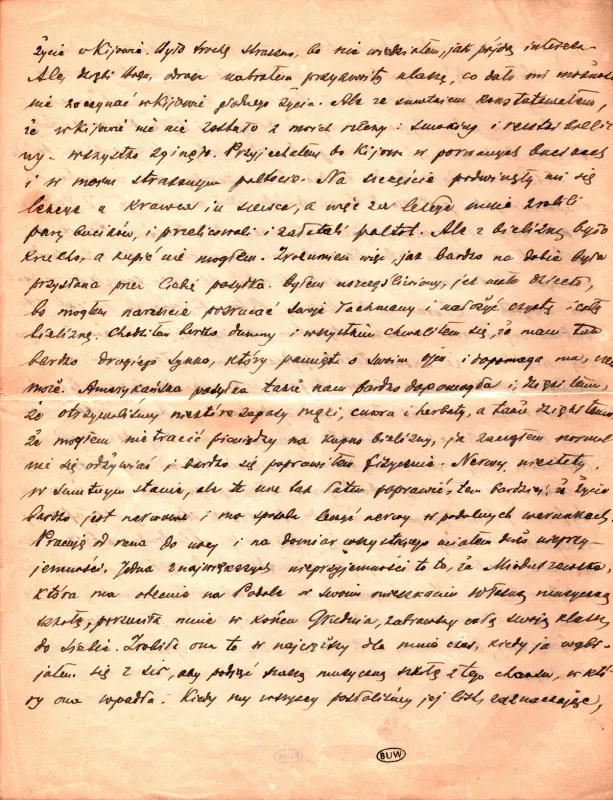 życie w Kijowie. Było trochę straszno, bo nie wiedziałem, jak pójdą interesa.
Ale, dzięki Bogu, odrazu nabrałem przyzwoitą klasę, co dało mi możność
nie zaczynać w Kijowie głodnego życia. Ale ze smutkiem konstatowałem,
że w Kijowie nic nie zostało z moich rzeczy: smokiny i reszta bieliz-
ny - wszystko zginęło. Przyjechałem do Kijowa w porwanych bucikach
i w moim strasznym paltocie. Na szczęście podwinęły mi się
lekcye u krawca i u szewca, a więc za lekcye mnie zrobili
parę bucików, i przelicowali i załatali paltot. Ale z bielizną było
krucho, a kupić nie mogłem. Zrozumiesz więc, jak bardzo na dobie była
przysłana przez Ciebie posyłka. Byłem uszczęśliwiony, jak małe dziecko,
bo mogłem nareszcie porzucać swoje łachmany i nałożyć czystą i całą
bieliznę. Chodziłem bardzo dumny i wszystkim chwaliłem się, że mam tak
bardzo drogiego synka, który pamięta o swoim ojcu i dopomaga mu, czem
może. Amerykańska posyłka także nam bardzo dopomogła i, dzięki temu,
że otrzymaliśmy niektóre zapasy mąki, cukru i herbaty, a także dzięki temu
że mogłem nie tracić pieniędzy na kupno bielizny, ja zacząłem normal
nie się odżywiać i bardzo się poprawiłem fizycznie. Nerwy, niestety,
w smutnym stanie, ale te nie tak łatwo poprawić, tem bardziej, że życie
bardzo jest nerwowe i nie sposób leczyć nerwy w podobnych warunkach.
Pracuję od rana do nocy i na domiar wszystkiego miałem dużo nieprzy-
jemności. Jedna z największych nieprzyjemności to to, że Mioduszewska,
która ma obecnie na Podole w swoim mieszkaniu własną muzyczną
szkołę, porzuciła mnie w końcu Grudnia, zabrawszy całą swoją klasę
do siebie. Zrobiła ona to w najcięższy dla mnie czas, kiedy ja wybi-
jałem się z sił, aby podjąć naszą muzyczną szkołę z tego chaosu, w któ-
ry ona wpadła. Kiedy my wszyscy posłaliśmy jej list, zaznaczając,
BUW